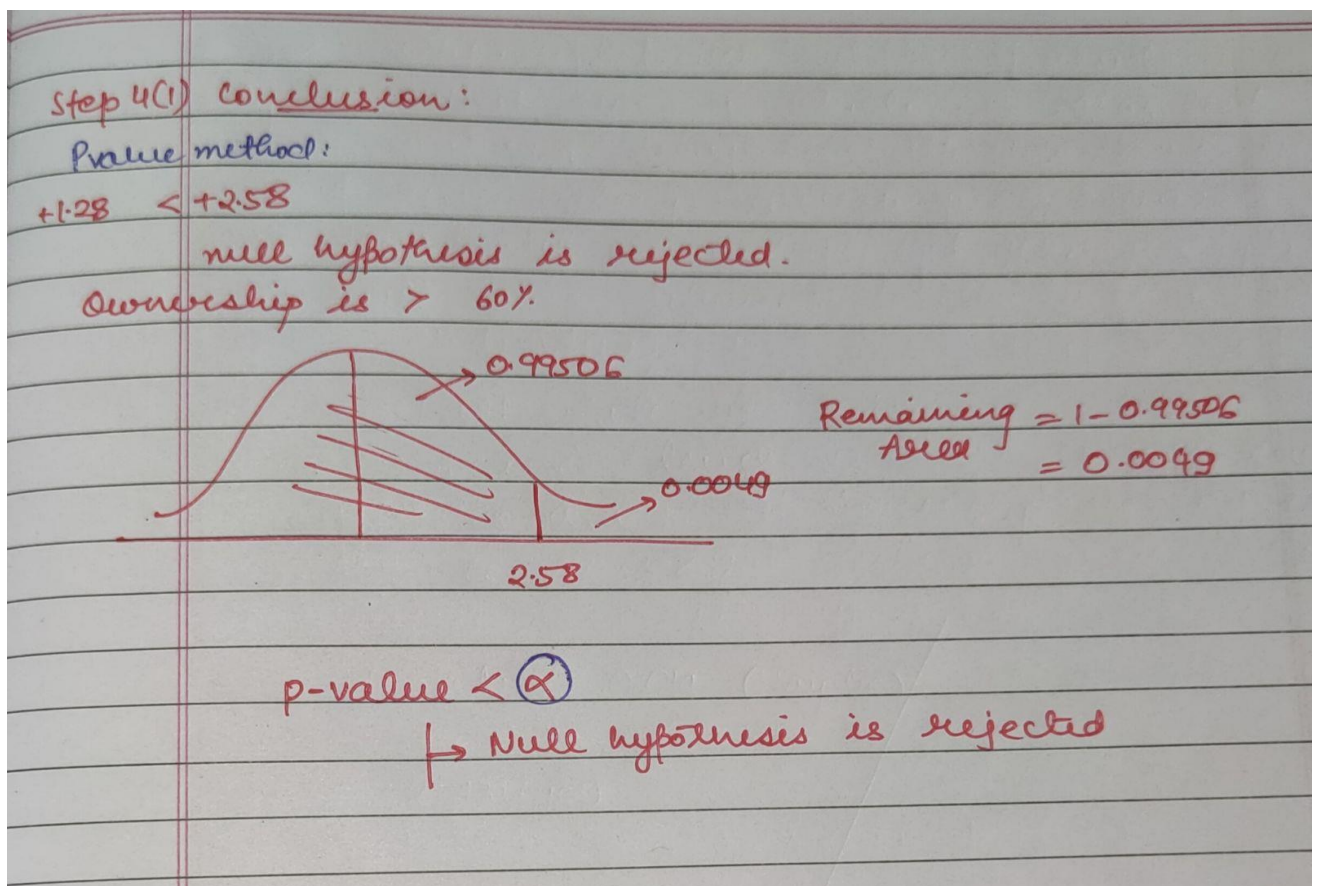 Step 4(1) Conclusion:
Pvalue method:
+1.28 < +2.58
null hypothesis is rejected.
Ownership is > 60%.
0.99506
Remaining Area = 1 - 0.99506
= 0.0049
0.0049
2.58
p-value < α
↳ Null hypothesis is rejected